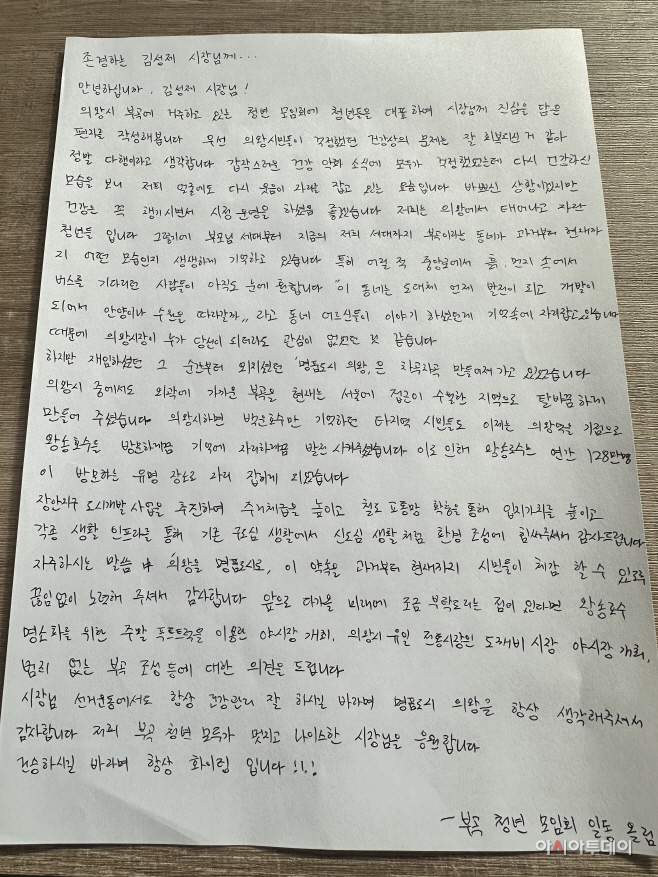 존경하는 김성제 시장님께...
안녕하십니까, 김성제 시장님!
의왕시 부곡에 거주하고 있는 청년 모임회에 청년들을 대표하여 시장님께 진심을 담은
편지를 작성해봅니다 우선 의왕시민들이 걱정했던 건강상의 문제는 잘 회복되신 거 같아
정말 다행이라고 생각합니다 갑작스러운 건강 악화 소식에 모두가 걱정했었는데 다시 건강하신
모습을 보니 저희 얼굴에도 다시 웃음이 자리 잡고 있는 요즘입니다 바쁘신 상황이겠지만
건강은 꼭 챙기시면서 시정 운영을 하셨음 좋겠습니다 저희는 의왕에서 태어나고 자란
청년들 입니다 그렇기에 부모님 세대부터 지금의 저희 세대까지 부곡이라는 동네가 과거부터 현재까
지 어떤 모습인지 생생하게 기억하고 있습니다 특히 어릴 적 중앙로에서 흙, 먼지 속에서
버스를 기다리던 사람들이 아직도 눈에 훤합니다 "이 동네는 도대체 언제 발전이 되고 개발이
되어서 안양이나 수원은 따라갈까,, 라고 동네 어르신들이 이야기 하셨던게 기억속에 자리잡고있습니다
때문에 의왕시장이 누가 당선이 되더라도 관심이 없었던 것 같습니다
하지만 재임하셨던 그 순간부터 외치셨던 '명품도시 의왕,은 차곡차곡 만들어져가고 있었습니다
의왕시 중에서도 외곽에 가까운 부곡을 현재는 서울에 접근이 수월한 지역으로 탈바꿈하게
만들어 주셨습니다 의왕시하면 백운호수만 기억하던 타지역 시민들도 이제는 의왕역을 기점으로
왕송호수를 방문하게끔 기억에 자리하게끔 발전 시켜주셨습니다 이로 인해 왕송호수는 연간 128만명
이 방문하는 유명 장소로 자리 잡히게 되었습니다
장안지구 도시개발 사업을 추진하여 주거체급을 높이고 철도 교통망 확충을 통해 입지가치를 높이고
각종 생활 인프라를 통해 기존 구도심 생활에서 신도심 생활처럼 환경 조성에 힘써주셔서 감사드립니다
자주하시는 말씀 中 "의왕을 명품도시로, 이 약속을 과거부터 현재까지 시민들이 체감 할 수 있도록
끊임없이 노력해 주셔서 감사합니다 앞으로 다가올 미래에 조금 부탁드리는 점이 있다면 왕송호수
명소화를 위한 주말 푸드트럭을 이용한 야시장 개최, 의왕시 유일 전통시장인 도깨비 시장 야시장 개최,
범죄 없는 부곡 조성 등에 대한 의견을 드립니다
시장님 선거운동에서도 항상 건강관리 잘 하시길 바라며 명품도시 의왕을 항상 생각해주셔서
감사합니다 저희 부곡 청년 모두가 멋지고 나이스한 시장님을 응원합니다
건승하시길 바라며 항상 화이팅 입니다!!!
- 부곡 청년 모임회 일동 올림
아시아투데이